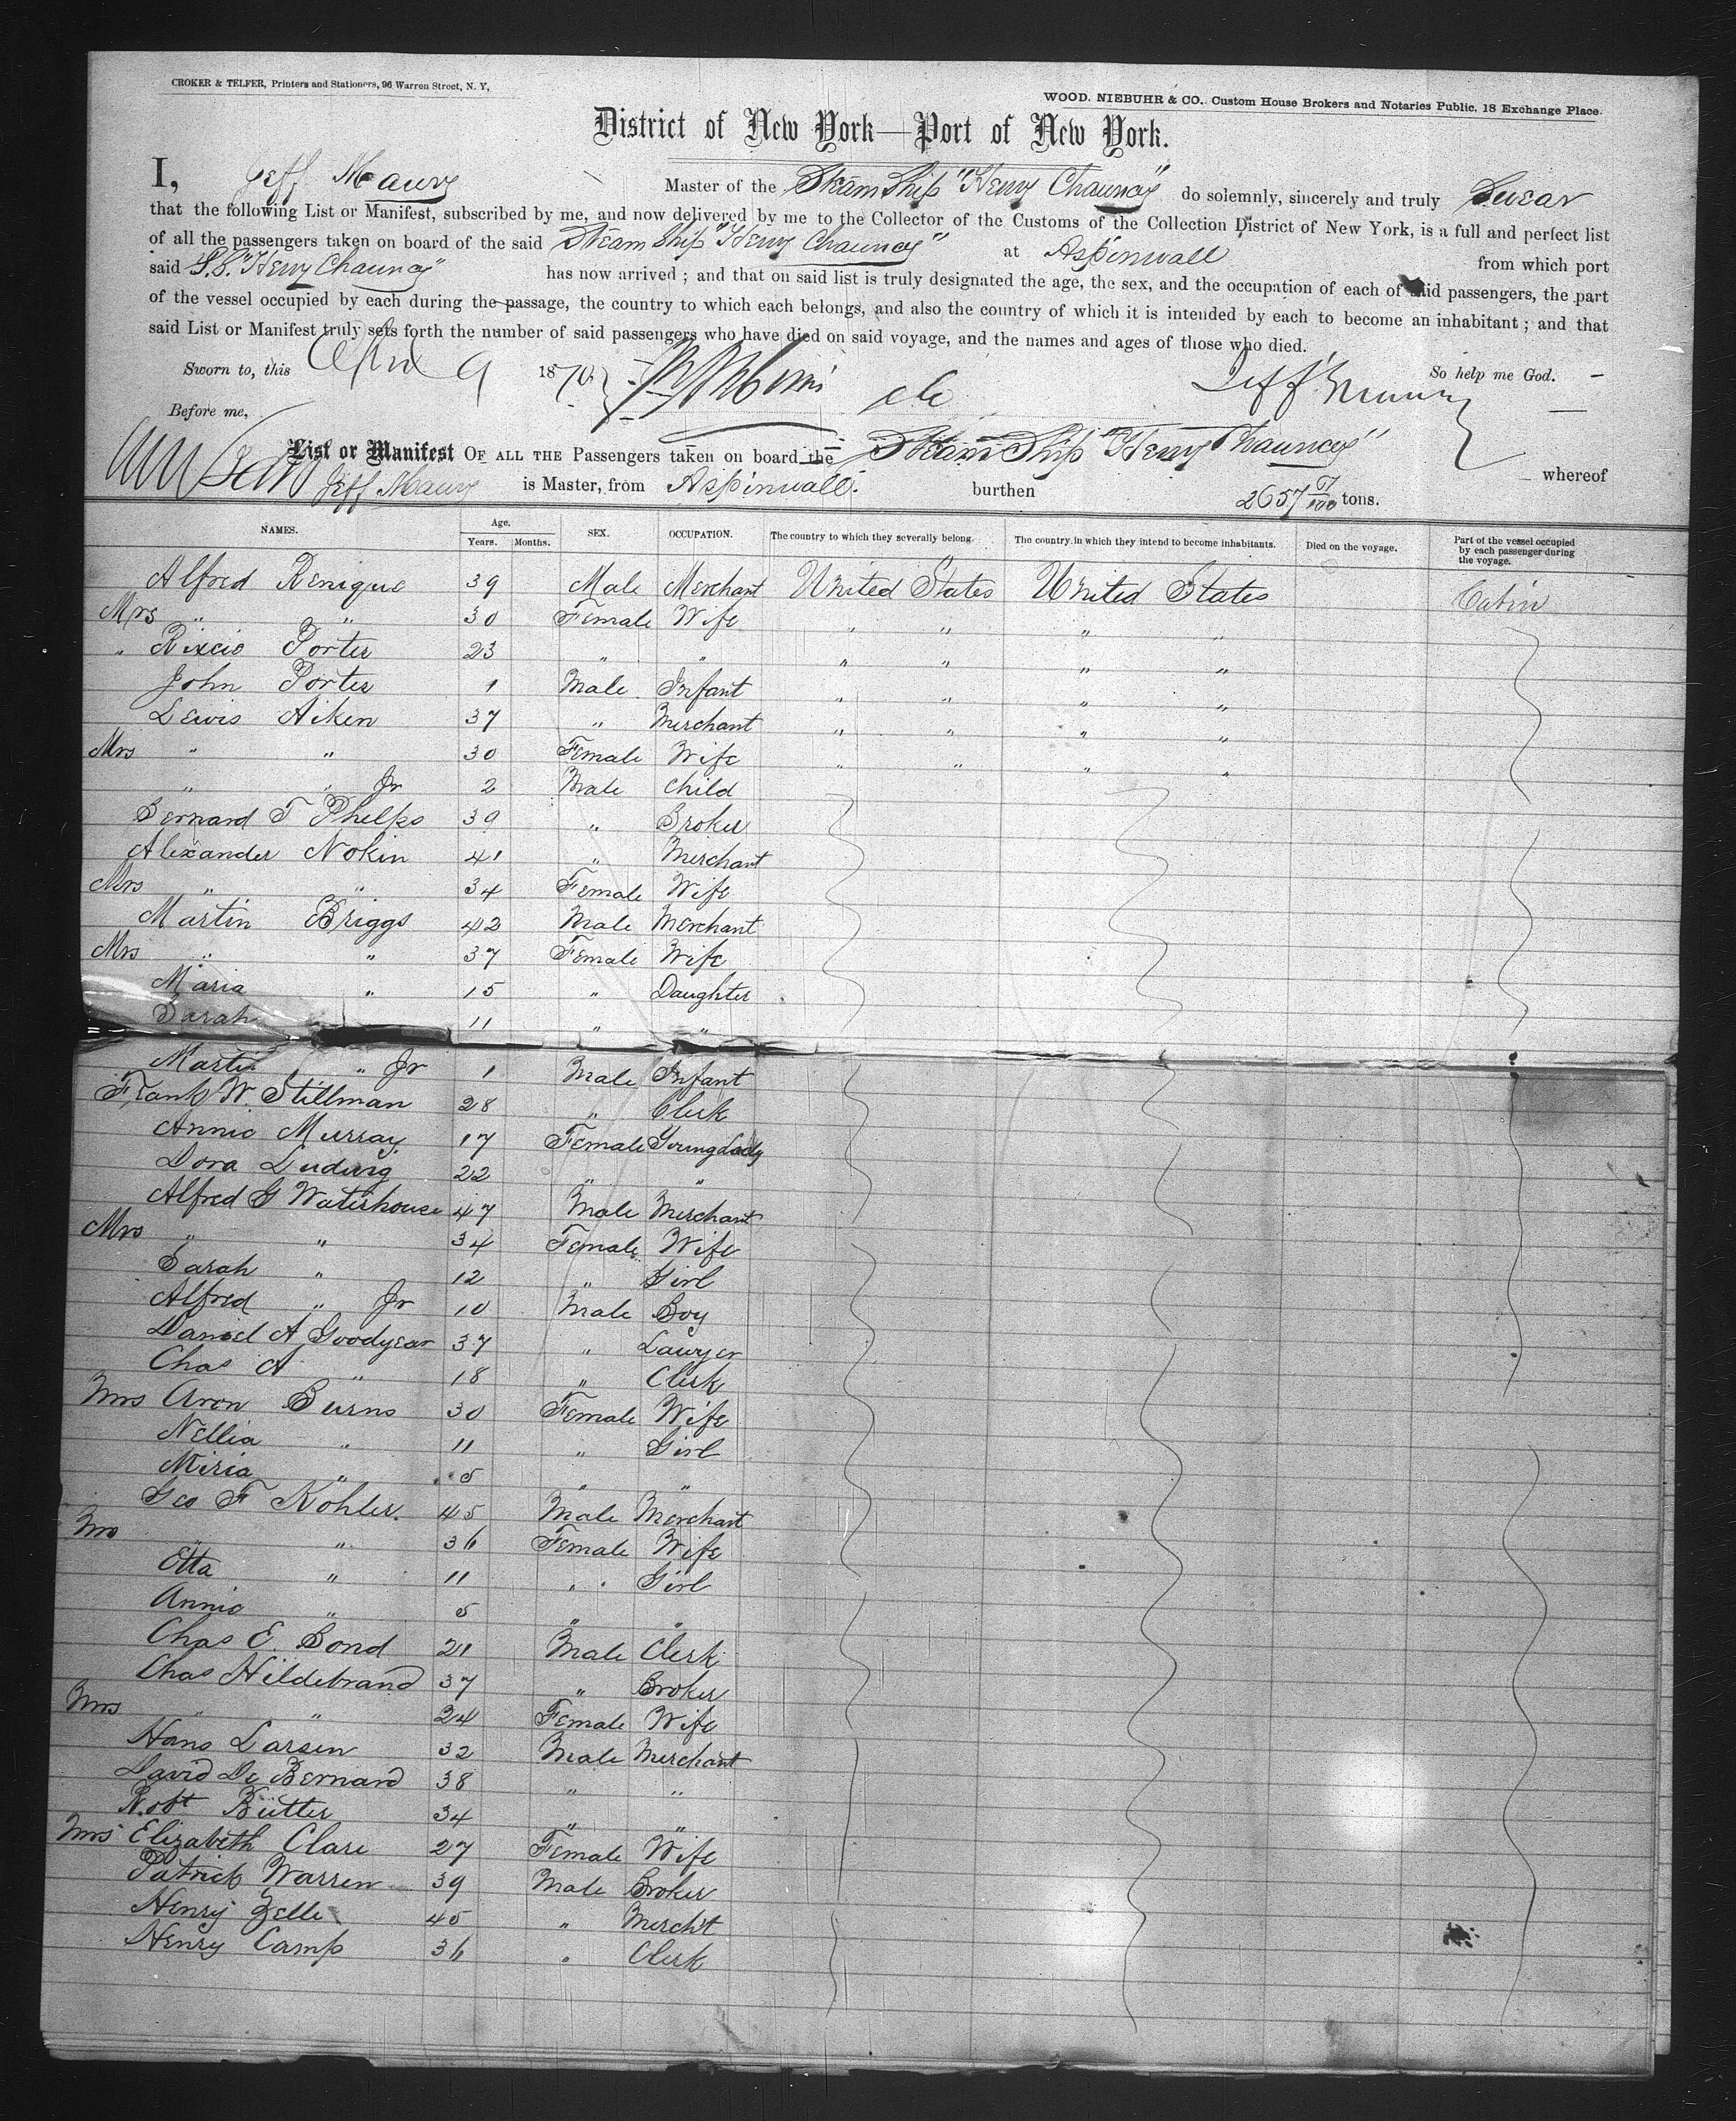 CROKER & TELFER, Printers and Stationers, 96 Warren Street, N. Y,
WOOD. NIEBUHR & CO.. Custom House Brokers and Notaries Public, 18 Exchange Place.
District of New York—Port of New York.
I, Jeff Maury Master of the Steam Ship "Henry Chauncey" do solemnly, sincerely and truly Swear
that the following List or Manifest, subscribed by me, and now delivered by me to the Collector of the Customs of the Collection District of New York, is a full and perfect list
of all the passengers taken on board of the said Steam Ship "Henry Chauncey" at Aspinwall from which port
said S.S. "Henry Chauncey" has now arrived ; and that on said list is truly designated the age, the sex, and the occupation of each of said passengers, the part
of the vessel occupied by each during the passage, the country to which each belongs, and also the country of which it is intended by each to become an inhabitant ; and that
said List or Manifest truly sets forth the number of said passengers who have died on said voyage, and the names and ages of those who died.
Sworn to, this April 9 1870 So help me God.
Jeff Maury
Before me,
List or Manifest OF ALL THE Passengers taken on board the Steam Ship "Henry Chauncey" whereof
Jeff Maury is Master, from Aspinwall. burthen 2657 tons.
NAMES. Age. Years. Months. SEX. OCCUPATION. The country to which they severally belong. The country in which they intend to become inhabitants. Died on the voyage. Part of the vessel occupied by each passenger during the voyage.
Alfred Renique 39 Male Merchant United States United States Cabin
Mrs " " 30 Female Wife " " " "
" Porter 23 " " " " " "
John Porter 1 Male Infant " " " "
Lewis Aiken 37 " Merchant " " " "
Mrs " " 30 Female Wife " " " "
" " Jr 2 Male Child
Bernard T Phelps 39 " Broker
Alexander Nokin 41 " Merchant
Mrs " " 34 Female Wife
Martin Briggs 42 Male Merchant
Mrs " " 37 Female Wife
Maria " 15 " Daughter
Sarah 11 " "
Martin " Jr 1 Male Infant
Frank W. Stillman 28 " Clerk
Annie Murray 17 Female Young Lady
Dora Ludwig 22 " "
Alfred G Waterhouse 47 Male Merchant
Mrs " " 34 Female Wife
Sarah " 12 " Girl
Alfred " Jr 10 Male Boy
Daniel A Goodyear 37 " Lawyer
Chas A " 18 " Clerk
Mrs Aron Burns 30 Female Wife
Nellia " 11 " Girl
Miria " 5 " "
Geo F Kohler. 45 Male Merchant
Mrs " " 36 Female Wife
Etta " 11 " Girl
Annie " 5 " "
Chas E. Bond 21 Male Clerk
Chas Hildebrand 37 " Broker
Mrs " " 24 Female Wife
Hans Larsen 32 Male Merchant
David De Bernard 38 " "
Robt Bütter 34 " "
Mrs Elizabeth Clare 27 Female Wife
Patrick Warren 39 Male Broker
Henry Zelle 45 " Mercht
Henry Camp 36 " Clerk